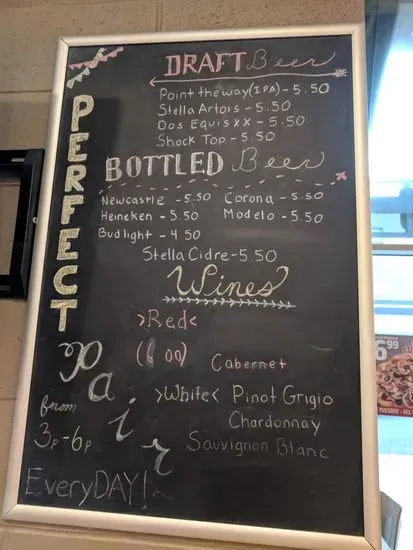 PERFECT
Pair
from
3p-6p
EveryDAY!
DRAFT Beer
Point the way (IPA) - 5.50
Stella Artois - 5.50
Dos Equis xx - 5.50
Shock Top - 5.50
BOTTLED Beer
Newcastle - 5.50 Corona - 5.50
Heineken - 5.50 Modelo - 5.50
Bud light - 4.50
Stella Cidre - 5.50
Wines
>Red<
(6.00) Cabernet
>White< Pinot Grigio
Chardonnay
Sauvignon Blanc
6.99
TUESDAY - ALL